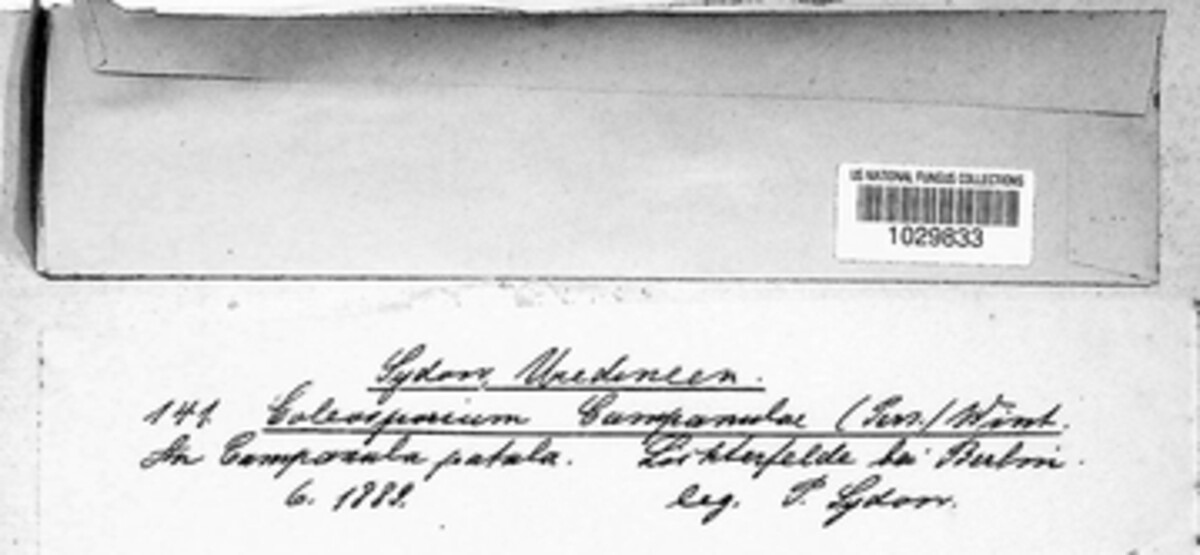 US NATIONAL FUNGUS COLLECTIONS
1029833
Sydow, Uredineen.
141. Coleosporium Campanulae (Pers.) Wint.
In Campanula patula. Lichterfelde bei Berlin.
6. 1889. leg. P. Sydow.